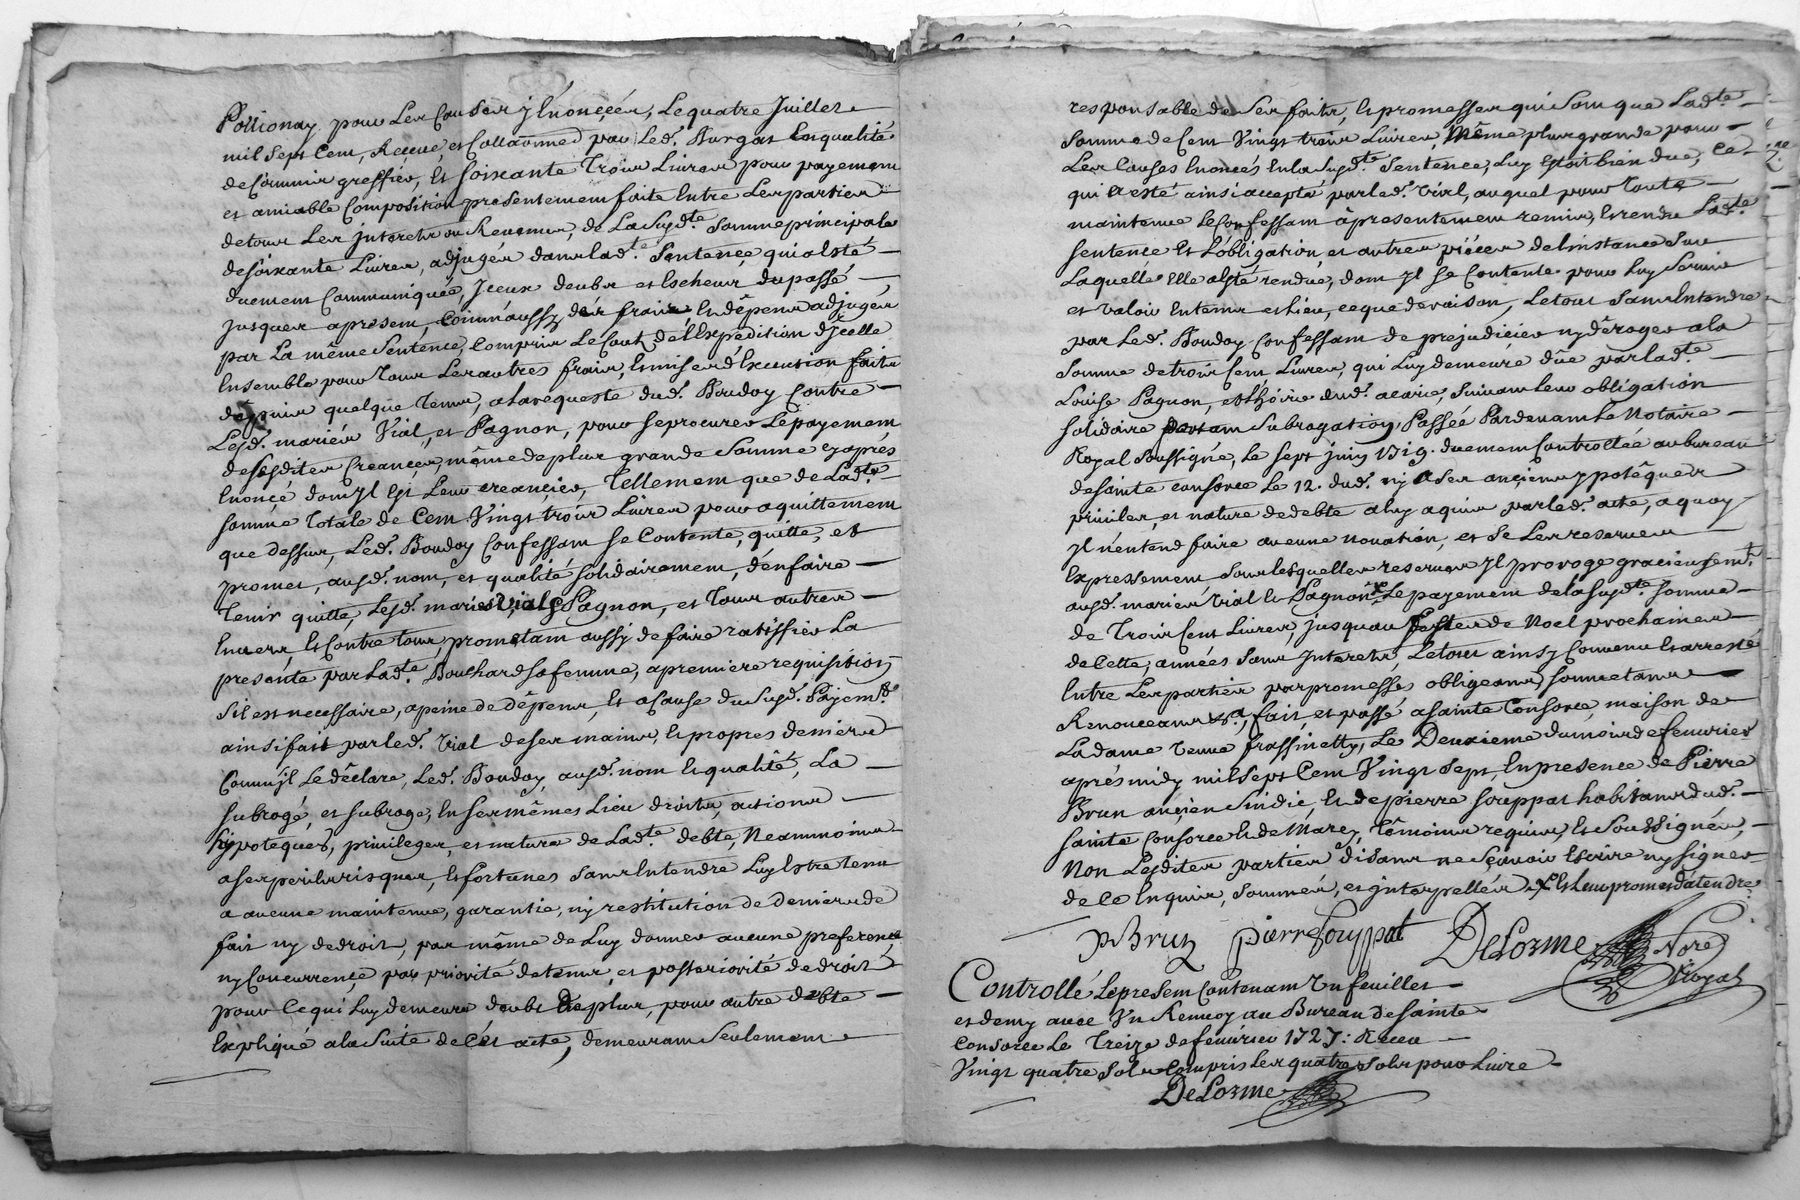 Pollionay pour Les Causes y Enoncées, Le quatre Juillet
mil Sept Cent, Receue, et Collationné par Led. Burgat En qualité
de Commis greffier, Et Soixante Trois Livres pour payement
et amiable Composition présentement faite Entre Les parties
de tous Les Interets ou Revenus, de La Susd.te Somme principale
de Soixante Livres, adjugés dans lad.te Sentence, qui a Esté
duement Communiquée, Iceux deubs et Escheus du passé
jusques apresent, Comm'aussy des frais Et dépens adjugés
par La même Sentence, Compris Le Cout de l'Expédition d'Icelle
Ensemble pour Tous Les autres frais, Et mises d'Execution faits
depuis quelque Tems, a La requeste dud. Boudoy Contre
Lesd. mariés Vial, et Pagnon, pour Se procurer Le payement
de Sesdites Creances, même de plus grande Somme Cy aprés
Enoncé dont Il Est Leur creancier, Tellement que de Lad.te
Somme Totale de Cent Vingt trois Livres pour aquittement
que dessus, Led. Boudoy Confessant Se Contente, quitte, et
promet, ausd. nom, et qualité Solidairement, d'en faire
Tenir quitte, Lesd. mariés Vial & Pagnon, et Tous autres
Envers Et Contre tous, promettant aussy de faire ratiffier La
presente par Lad.te Bouchard Sa femme, a premiere requisition
S'il est necessaire, a peine de dépens, Et a Cause du Susd. Payem.t
ainsi fait par led. Vial de Ses mains, Et propres deniers
Comm'il Le déclare, Led. Boudoy, ausd. nom Et qualité, La
Subrogé, et Subroge, En Ses mêmes Lieu droits, actions
hypoteques, privileges, et nature de Lad.te debte, Neanmoins
a Ses perils risques, Et fortunes Sans Entendre Luy Estre tenu
a aucune maintenue, garantie, ny restitution de deniers de
fait ny de droit, pas même de Luy donner aucune preference
ny Concurrence, pas priorité de tems, et posteriorité de droit
pour Ce qui Luy demeure deubt De plus, pour autre debte
Expliqué a la Suite de Cet acte, demeurant Seulement
responsable de Ses faits, Et promesses qui Sont que Lad.te
Somme de Cent Vingt trois Livres, Même plus grande pour
Les Causes Enoncés En la Susd.te Sentence, Luy Estoit bien due, Ce
qui a esté ainsi accepté par led. Vial, auquel pour Toute
maintenue Le Confessant à presentement remis, Et rendu Lad.te
Sentence Et L'obligation, et autres piéces de L'instance Sur
Laquelle Elle a Esté rendue, dont Il Se Contente pour Luy Servir
et valoir En tems et Lieu, ce que de raison, Le tout Sans Entendre
par Led. Boudoy Confessant de prejudicier ny déroger a la
Somme de trois Cent Livres, qui Luy demeure dûe par lad.te
Louise Pagnon, et L'hoirie dud. Suivant Leur obligation
Solidaire Subrogation, Passée Pardevant Le Notaire
Royal Soussigné, Le Sept juin 1719. duement Controllée au bureau
de Sainte Consorce Le 12. dud. ny a Ses anciens ypotêques
privileges, et nature de debte a luy aquis par led. acte, a quoy
Il n'entend faire aucune novation, et Se Les reserve
Expressement, Sous lesquelles reserves Il proroge gracieusem.t
ausd. mariés Vial Et Pagnon X Le payement de la Susd.te Somme
de Trois Cent Livres, jusqu'au festes de Noel prochaines
de Cette, années Sans Interets, Le tout ainsy Convenu Et arresté
Entre Les parties par promesses, obligeans, Soumettans
Renonceans &.a, fait, et passé a Sainte Consorce, maison de
La dame Veuve frassinetty, Le Deuxieme du mois de fevrier
aprés midy mil Sept Cent Vingt Sept, En presence de Pierre
Brun ancien Sindic, Et de pierre Souppat habitans dud.
Sainte Consorce Et de Marcy, Témoins requis, Et Soussignés,
Non Lesdites parties disans ne Sçavoir Escrire ny Signer
de Ce Enquis, Sommés, et Interpellés X Et Leur promes d'atendre
P Brun pierre Souppat DeLorme No.re Royal
Controllé Le present Contenant Un feuillet
et demy avec Un Renvoy au Bureau de Sainte
Consorce Le Treize de fevrier 1727: Receu
Vingt quatre Sols Compris Les quatre Sols pour Livre
DeLorme